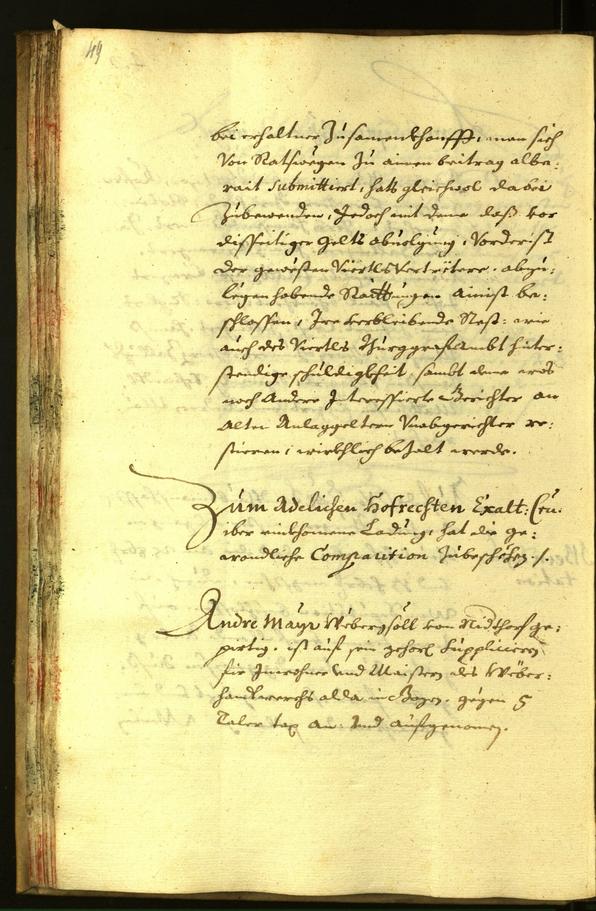 49
bei erhaltner Zusamenkhonfft, man sich
Von Ratswegen Zu ainen beitrag albe¬
rait submittiert, hats gleichwol dabei
Zubewenden, Jedoch mit deme das vor
disseitiger gelts abuolgung, Vorderist
der gewesten Viertls Vertrettere abzu¬
legen habende Raittungen ainist be¬
schlossen, Ire verbleibende Rest wie
auch des Viertls Burggrafambt hinter¬
stendige schuldigkheit sambt deme was
noch Andere Interessierte Gerichter an
Alten Anlaggeltern Vnabgerichter re¬
stieren, wirkhlich bezalt werde.
Zum Adelichen Hofrechten Exalt: Cru:
iber einkhomene Ladung, hat die ge¬
wondliche Comparition Zubeschehen ./.
Andre Mayr Webergsöll von Nidthorf ge¬
pirtig, ist auf sein gehors. Supplicieren
für Inwohner vnd Maistern des Weber¬
handtwerchs alda in Bozen gegen 5
Taler tax an: Vnd aufgenomen.